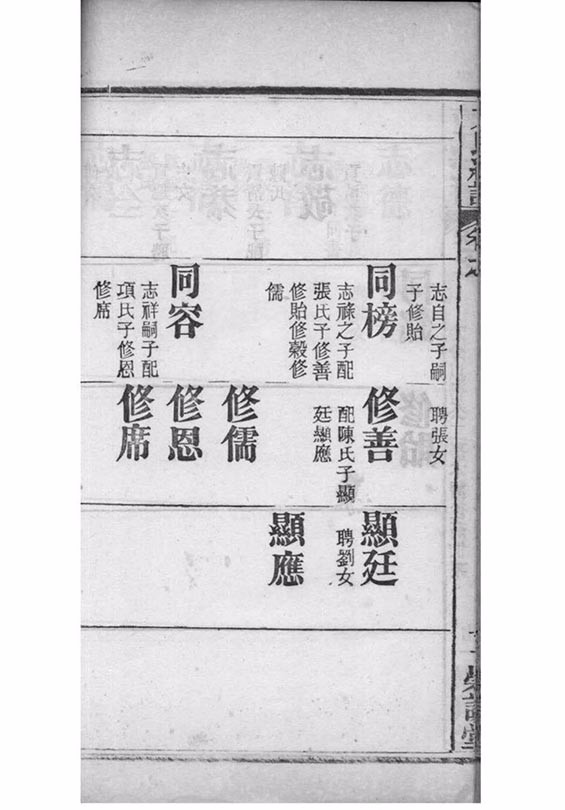 志自之子嗣
子修貽
同榜
志祿之子配
張氏子修善
修貽修穀修
儒
同容
志祥嗣子配
項氏子修恩
修席
聘張女
修善
配陳氏子顯
廷顯應
修儒
修恩
修席
顯廷
聘劉女
顯應